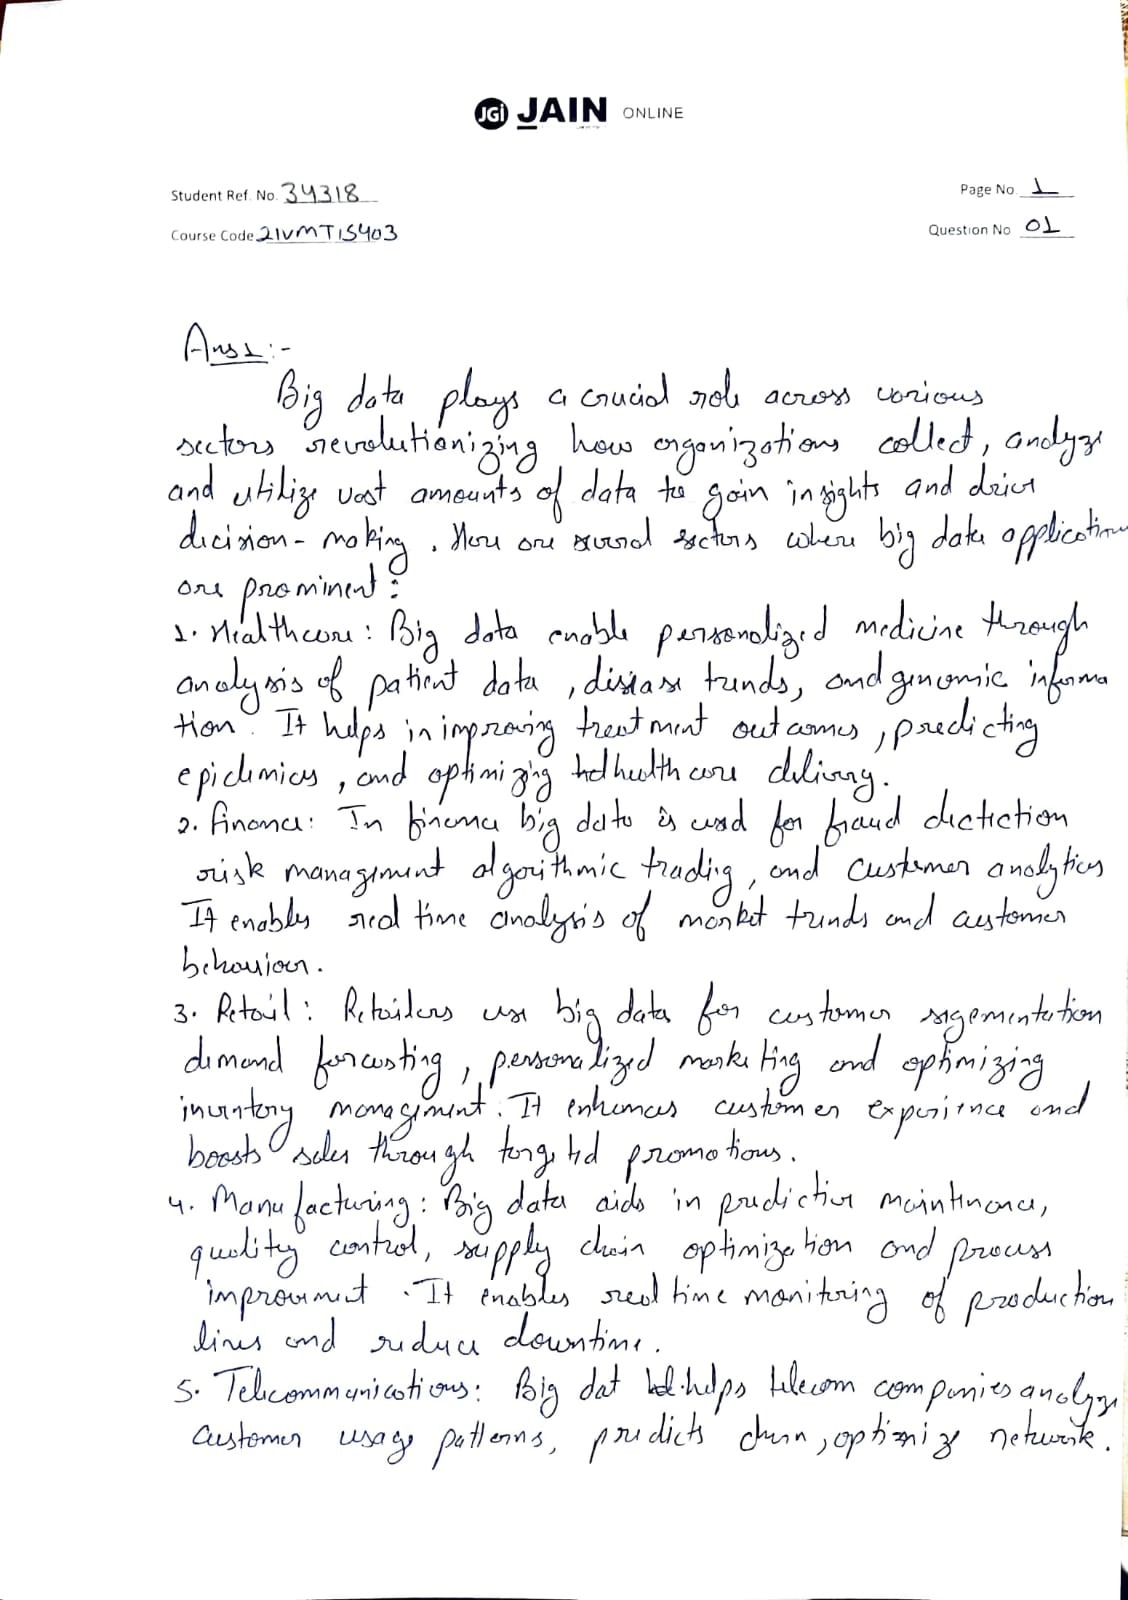 JGi JAIN ONLINE
Student Ref. No. 34318
Page No. 1
Course Code 21VMT1S403
Question No 01
Ans 1:-
Big data plays a crucial role across various
sectors revolutionizing how organizations collect, analyze
and utilize vast amounts of data to gain insights and drive
decision-making. Here are several sectors where big data application
are prominent:
1. Healthcare: Big data enable personalized medicine through
analysis of patient data, disease trends, and genomic informa
tion. It helps in improving treatment outcomes, predicting
epidemics, and optimizing healthcare delivery.
2. Finance: In finance big data is used for fraud dectection
risk management algorithmic trading, and customer analytics
It enables real time analysis of market trends and customer
behaviour.
3. Retail: Retailers use big data for customer segementation
demand forcasting, personalized marketing and optimizing
inventory management. It enhances customer experience and
boosts sales through targeted promotions.
4. Manufacturing: Big data aids in predictive maintenance,
quality control, supply chain optimization and process
improvement. It enables real time monitoring of production
lines and reduce downtime.
5. Telecommunications: Big dat helps telecom companies analyze
customer usage patterns, predicts churn, optimize network.